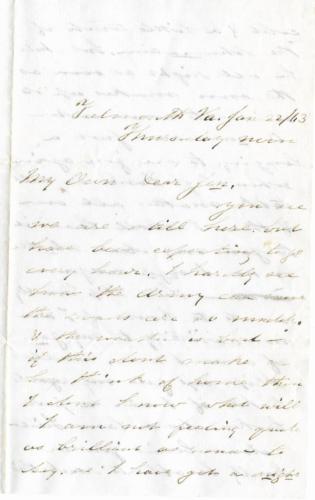 Falmouth Va. Jan 22/63
Thursday noon
My Own Dear Jen,
you see
we are still here. but
have been expecting to go
every hour. I hardly see
how the Army can
the roads are so muddy.
if this dont make
think of home then
I dont know what will
I am not feeling quite
as brilliant as usual to
day. as I have got a